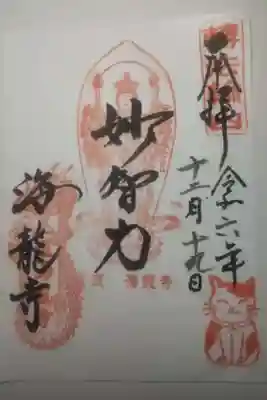 奉拝
令六年
十二月十九日
妙智力
海龍寺